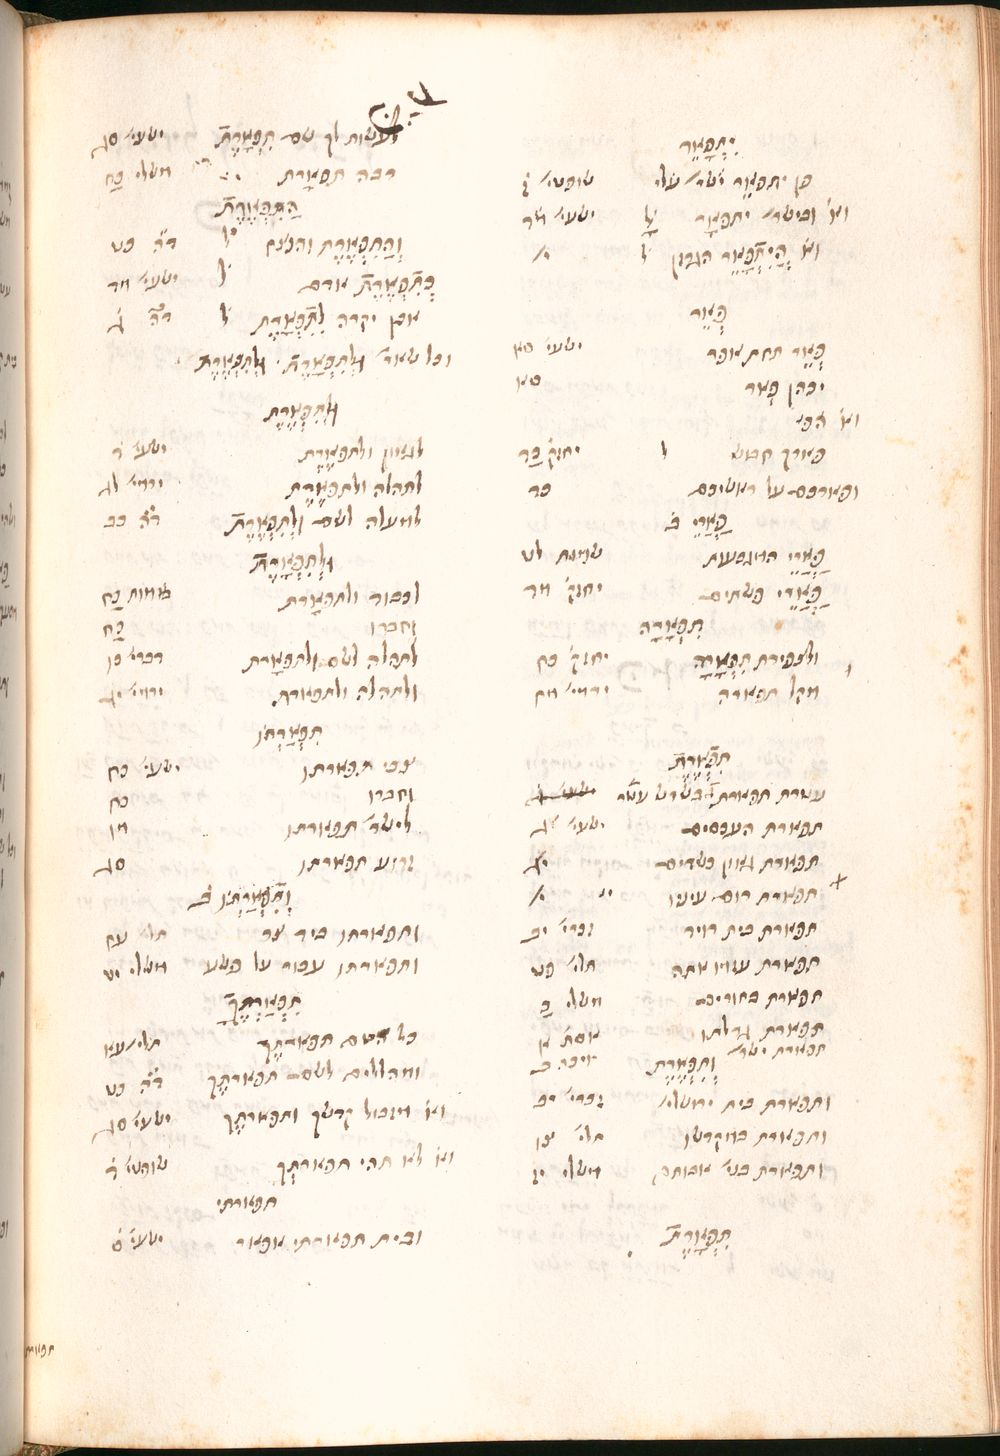 יִתְפָּאֵר
פן יתפאר ישר׳ עלי שופטי׳ ז
וא׳ ובישר׳ יתפאר ל ישעי׳ מד
וא׳ הֲיִתְפָּאֵר הגרזן ל י׳
פְּאֵר
פְּאֵר תחת אפר ישעי׳ סא
יכהן פאר סא
וא׳
פארך חבוש ל יחזק׳ כד
ופארכם על ראשיכם כד
פַּאֲרֵי ב׳
פַּאֲרֵי המגבעות שמות לט
פַּאֲרֵי פשתים יחזק׳ מד
תִפְאָרָה
ולצפירת תִפְאָרָה יחזק׳ כח
מקל תפארה ירמי׳ מח
תִפְאֶרֶת
עטרת תפארת
תפארת העכסים ישעי׳ ג
תפארת גאון כשדים יג
תפארת רום עיניו י׳
תפארת בית דויד זכרי׳ יב
תפארת עוזמו אתה תלי׳ פט
תפארת בחורים משלי כ
תפארת גדלתו אסת׳ א
תפארת ישר׳ איכה ב
וְתִפְאֶרֶת
ותפארת בית ירושלי׳ זכרי׳ יב
ותפארת במקדשו תלי׳ צו
ותפארת בני׳ אבותם משלי יז
תִפְאָרֶת
ולעשות לך שם תִפְאָרֶת ישעי׳ סג
רבה תפארת משלי כח
הַתִּפְאֶרֶת
וְהַתִּפְאֶרֶת והנצח ל דה׳ כט
כְּתִפְאֶרֶת אדם ל ישעי׳ מד
אבן יקרה לְתִפְאֶרֶת ל דה׳ ג
וכל שאר׳ וּלְתִפְאֶרֶת וּלְתִפְאֶרֶת
וּלְתִפְאֶרֶת
לגאון ולתפארת ישעי׳ ד
לתהלה ולתפארת ירמי׳ לג
למעלה לשם וּלְתִפְאֶרֶת דה׳ כב
וּלְתִפְאָרֶת
לכבוד ולתפארת שמות כח
וחברו כח
לתהלה לשם ולתפארת דברי׳ כו
ולתהלה ולתפארת ירמי׳ יג
תִפְאַרְתּוֹ
צבי תפארתו ישעי׳ כח
וחברו כח
לישר׳ תפארתו מו
זרוע תפארתו סג
וְתִפְאַרְתּוֹ ב׳
ותפארתו ביד צר תלי׳ עח
ותפארתו עבור על פשע משלי יט
תִפְאַרְתֶּךָ
כל היום תפארתך תלי׳ עא
ומהללים לשם תפארתך דה׳ כט
וא׳ מזבול קדשך ותפארתך ישעי׳ סג
וא׳ לא תהי תפארתך שופטי׳ ד
תפארתי
ובית תפארתי אפאר ישעי׳ ס